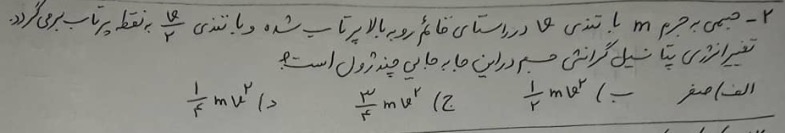 ۲- جسمی به جرم m با تندی v در راستای قائم رو به بالا پرتاب شده و با تندی v/۲ به نقطه پرتاب برمی‌گردد.
تغییر انرژی پتانسیل گرانشی جسم در این جابه‌جایی چند ژول است؟
الف) صفر ب) ۱/۲ mv² ج) ۳/۴ mv² د) ۱/۴ mv²